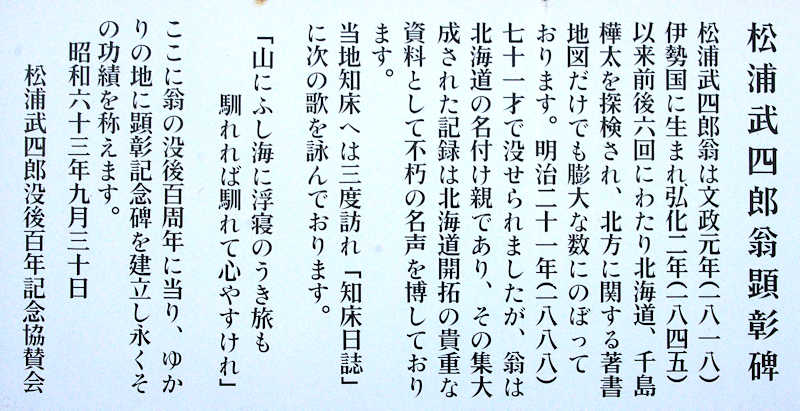 松浦武四郎翁顕彰碑
松浦武四郎翁は文政元年(一八一八)
伊勢国に生まれ弘化二年(一八四五)
以来前後六回にわたり北海道、千島
樺太を探検され、北方に関する著書
地図だけでも膨大な数にのぼって
おります。明治二十一年(一八八八)
七十一才で没せられましたが、翁は
北海道の名付け親であり、その集大
成された記録は北海道開拓の貴重な
資料として不朽の名声を博しており
ます。
当地知床へは三度訪れ「知床日誌」
に次の歌を詠んでおります。
「山にふし海に浮寝のうき旅も
馴れれば馴れて心やすけれ」
ここに翁の没後百周年に当り、ゆか
りの地に顕彰記念碑を建立し永くそ
の功績を称えます。
昭和六十三年九月三十日
松浦武四郎没後百年記念協賛会